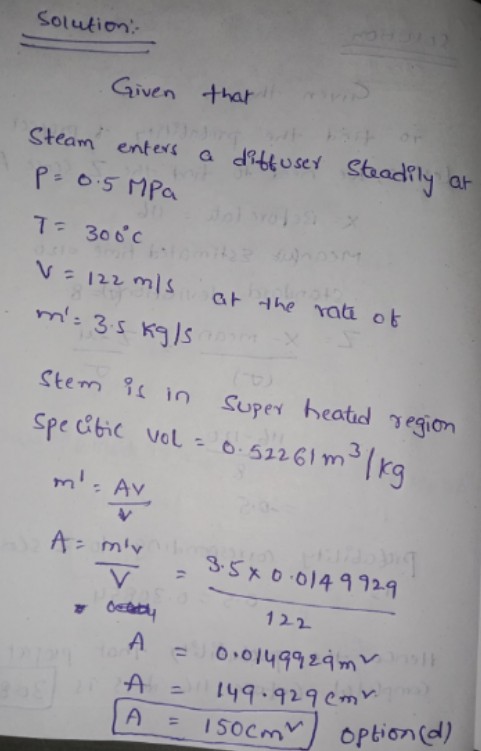 Solution:-
Given that
Steam enters a diffuser Steadily at
P = 0.5 MPa
T = 300°C
V = 122 m/s at the rate of
m' = 3.5 Kg/s
Stem is in Super heated region
Specific vol = 0.52261 m³/kg
m' = AV
v
A = m'v
V
= 3.5 x 0.0149929
122
A = 0.0149929m²
A = 149.929 cm²
A = 150cm² option(d)